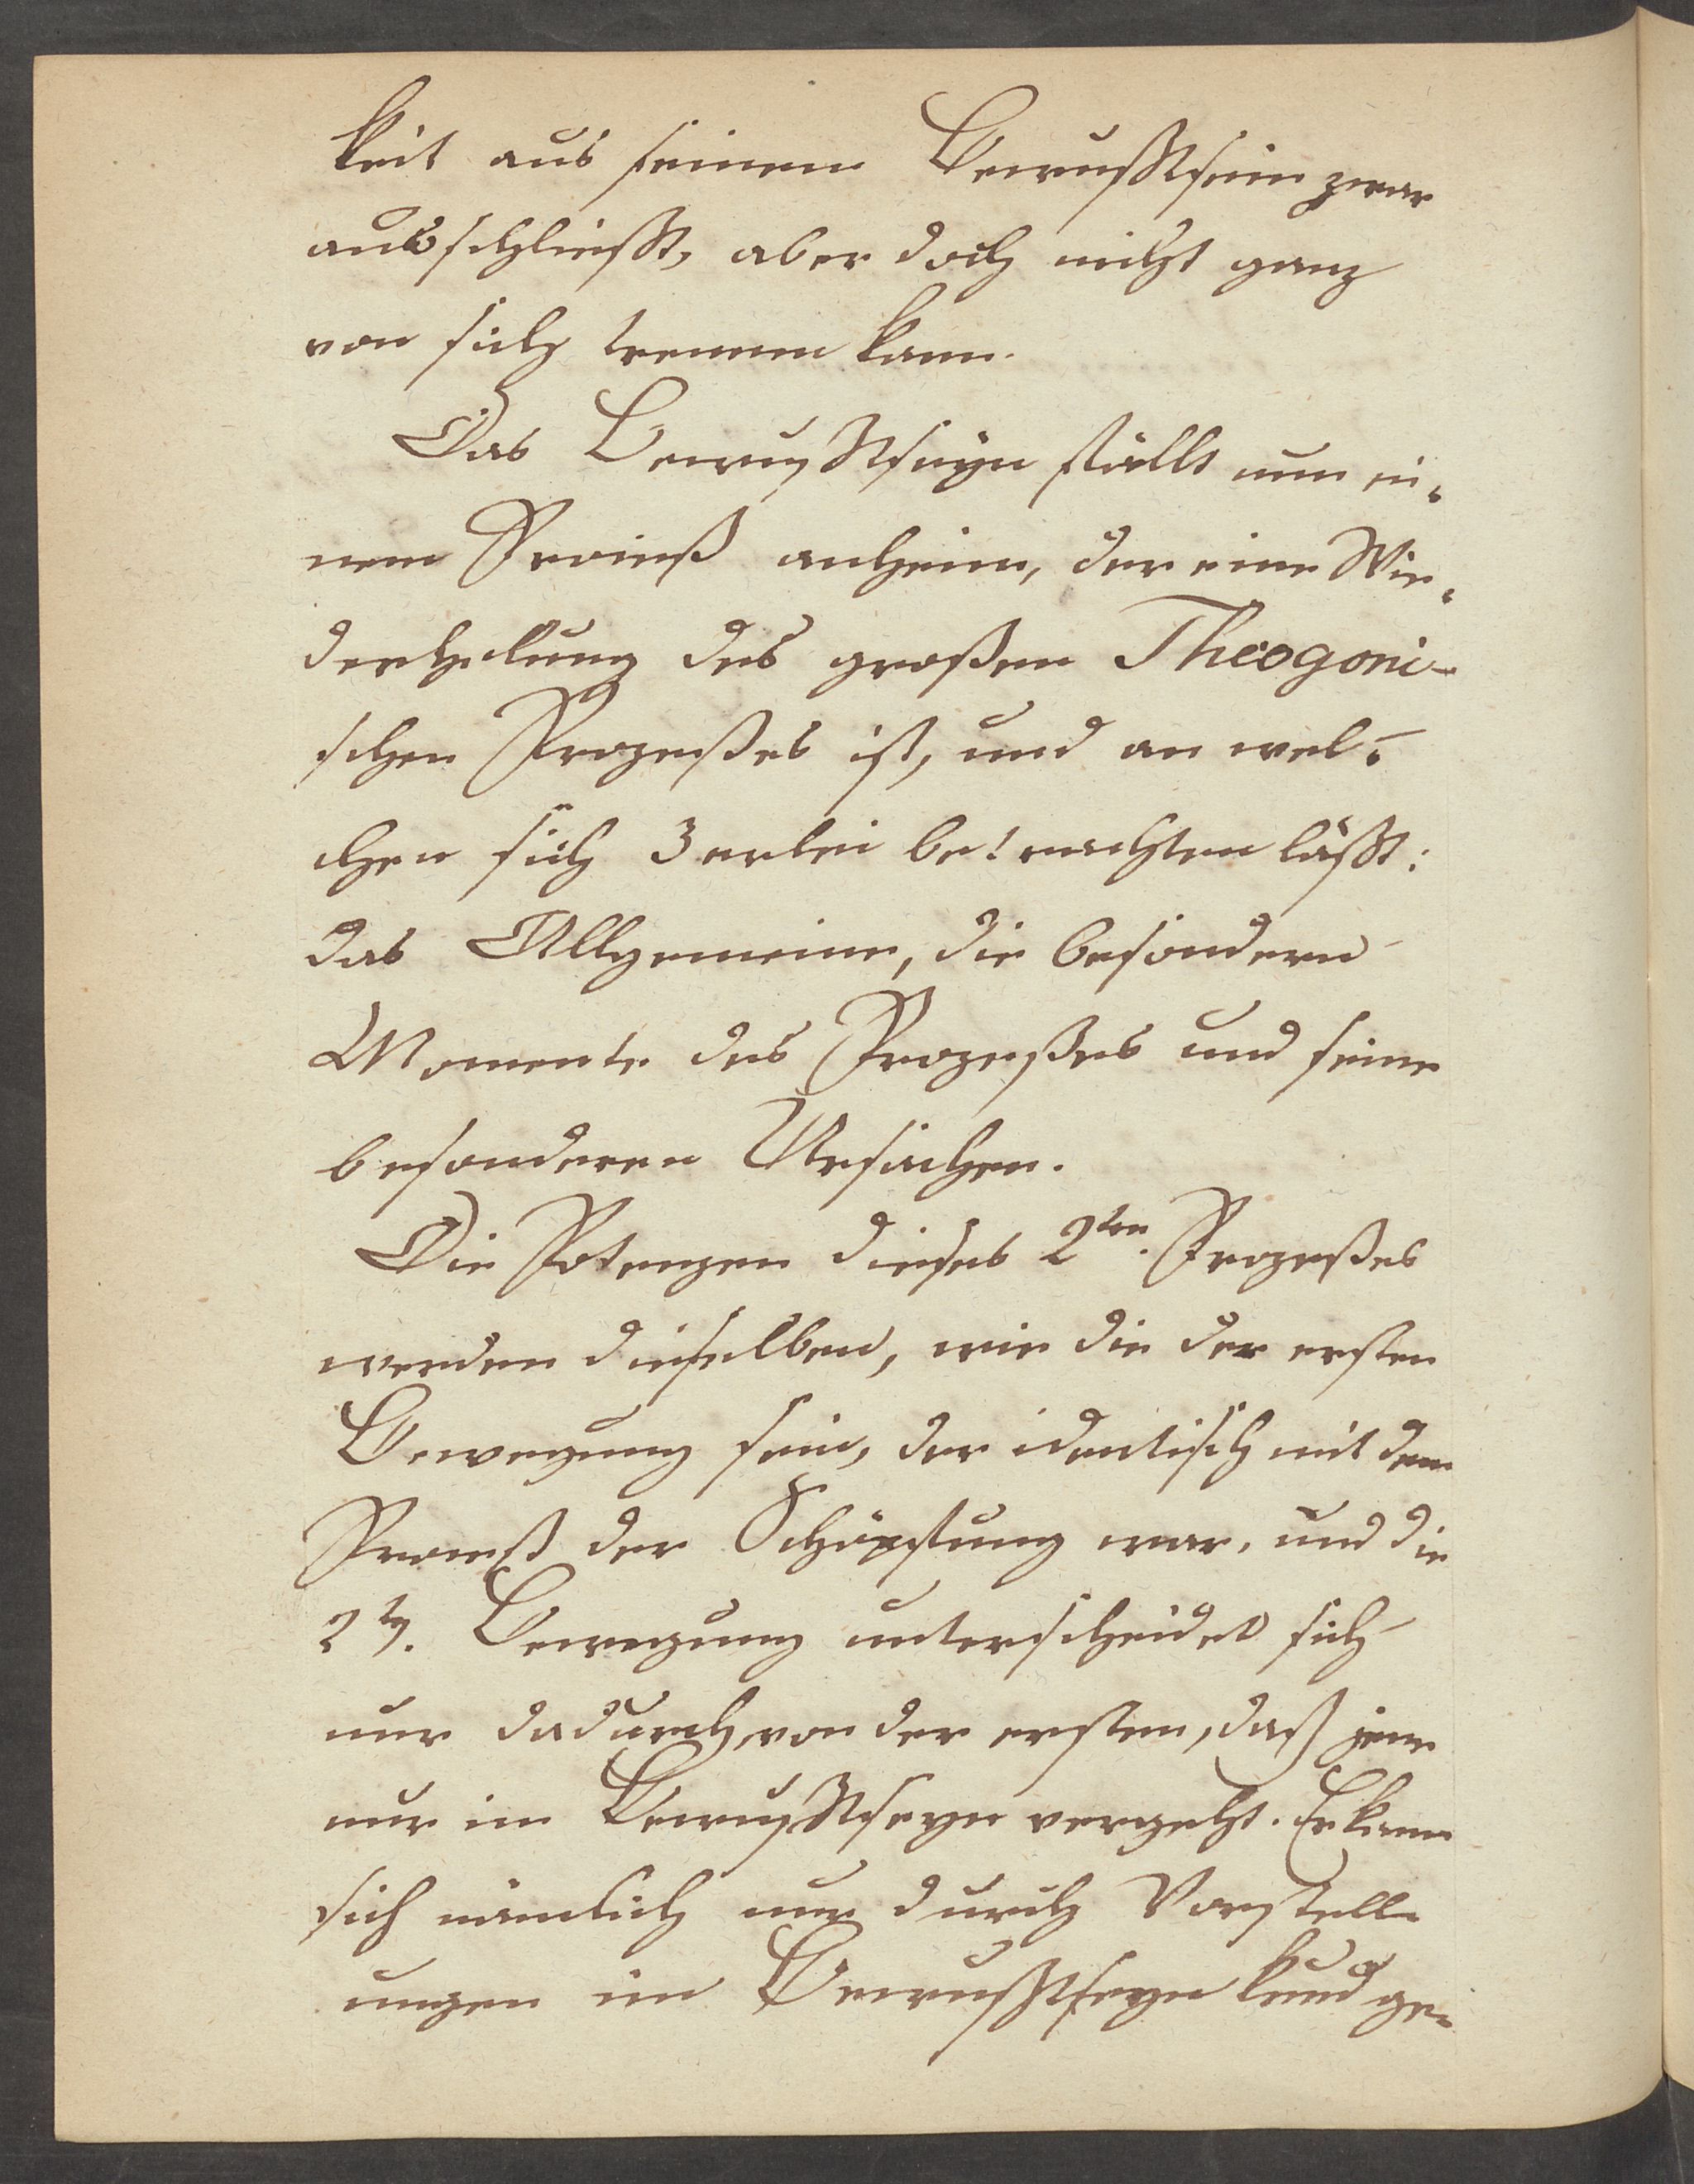 keit aus seinem Bewußtsein zwar
ausschließt, aber doch nicht ganz
von sich trennen kann.
Das Bewußtseyn fällt nun ei-
nem Proceß anheim, der eine Wie-
derholung des großen Theogoni-
schen Prozeßes ist, und an wel-
chen sich 3erlei betrachten läßt:
das Allgemeine, die besondern
Momente des Prozeßes und seine
besonderen Ursachen.
Die Potenzen dieses 2ten. Prozeßes
werden dieselben, wie die der ersten
Bewegung sein, der identisch mit dem
Proceß der Schöpfung war, und die
2te. Bewegung unterscheidet sich
nur dadurch von der ersten, daß jene
nur im Bewußtseyn vergeht. Er kann
sich nämlich nur durch Vorstell-
ungen im Bewußtseyn kund ge-